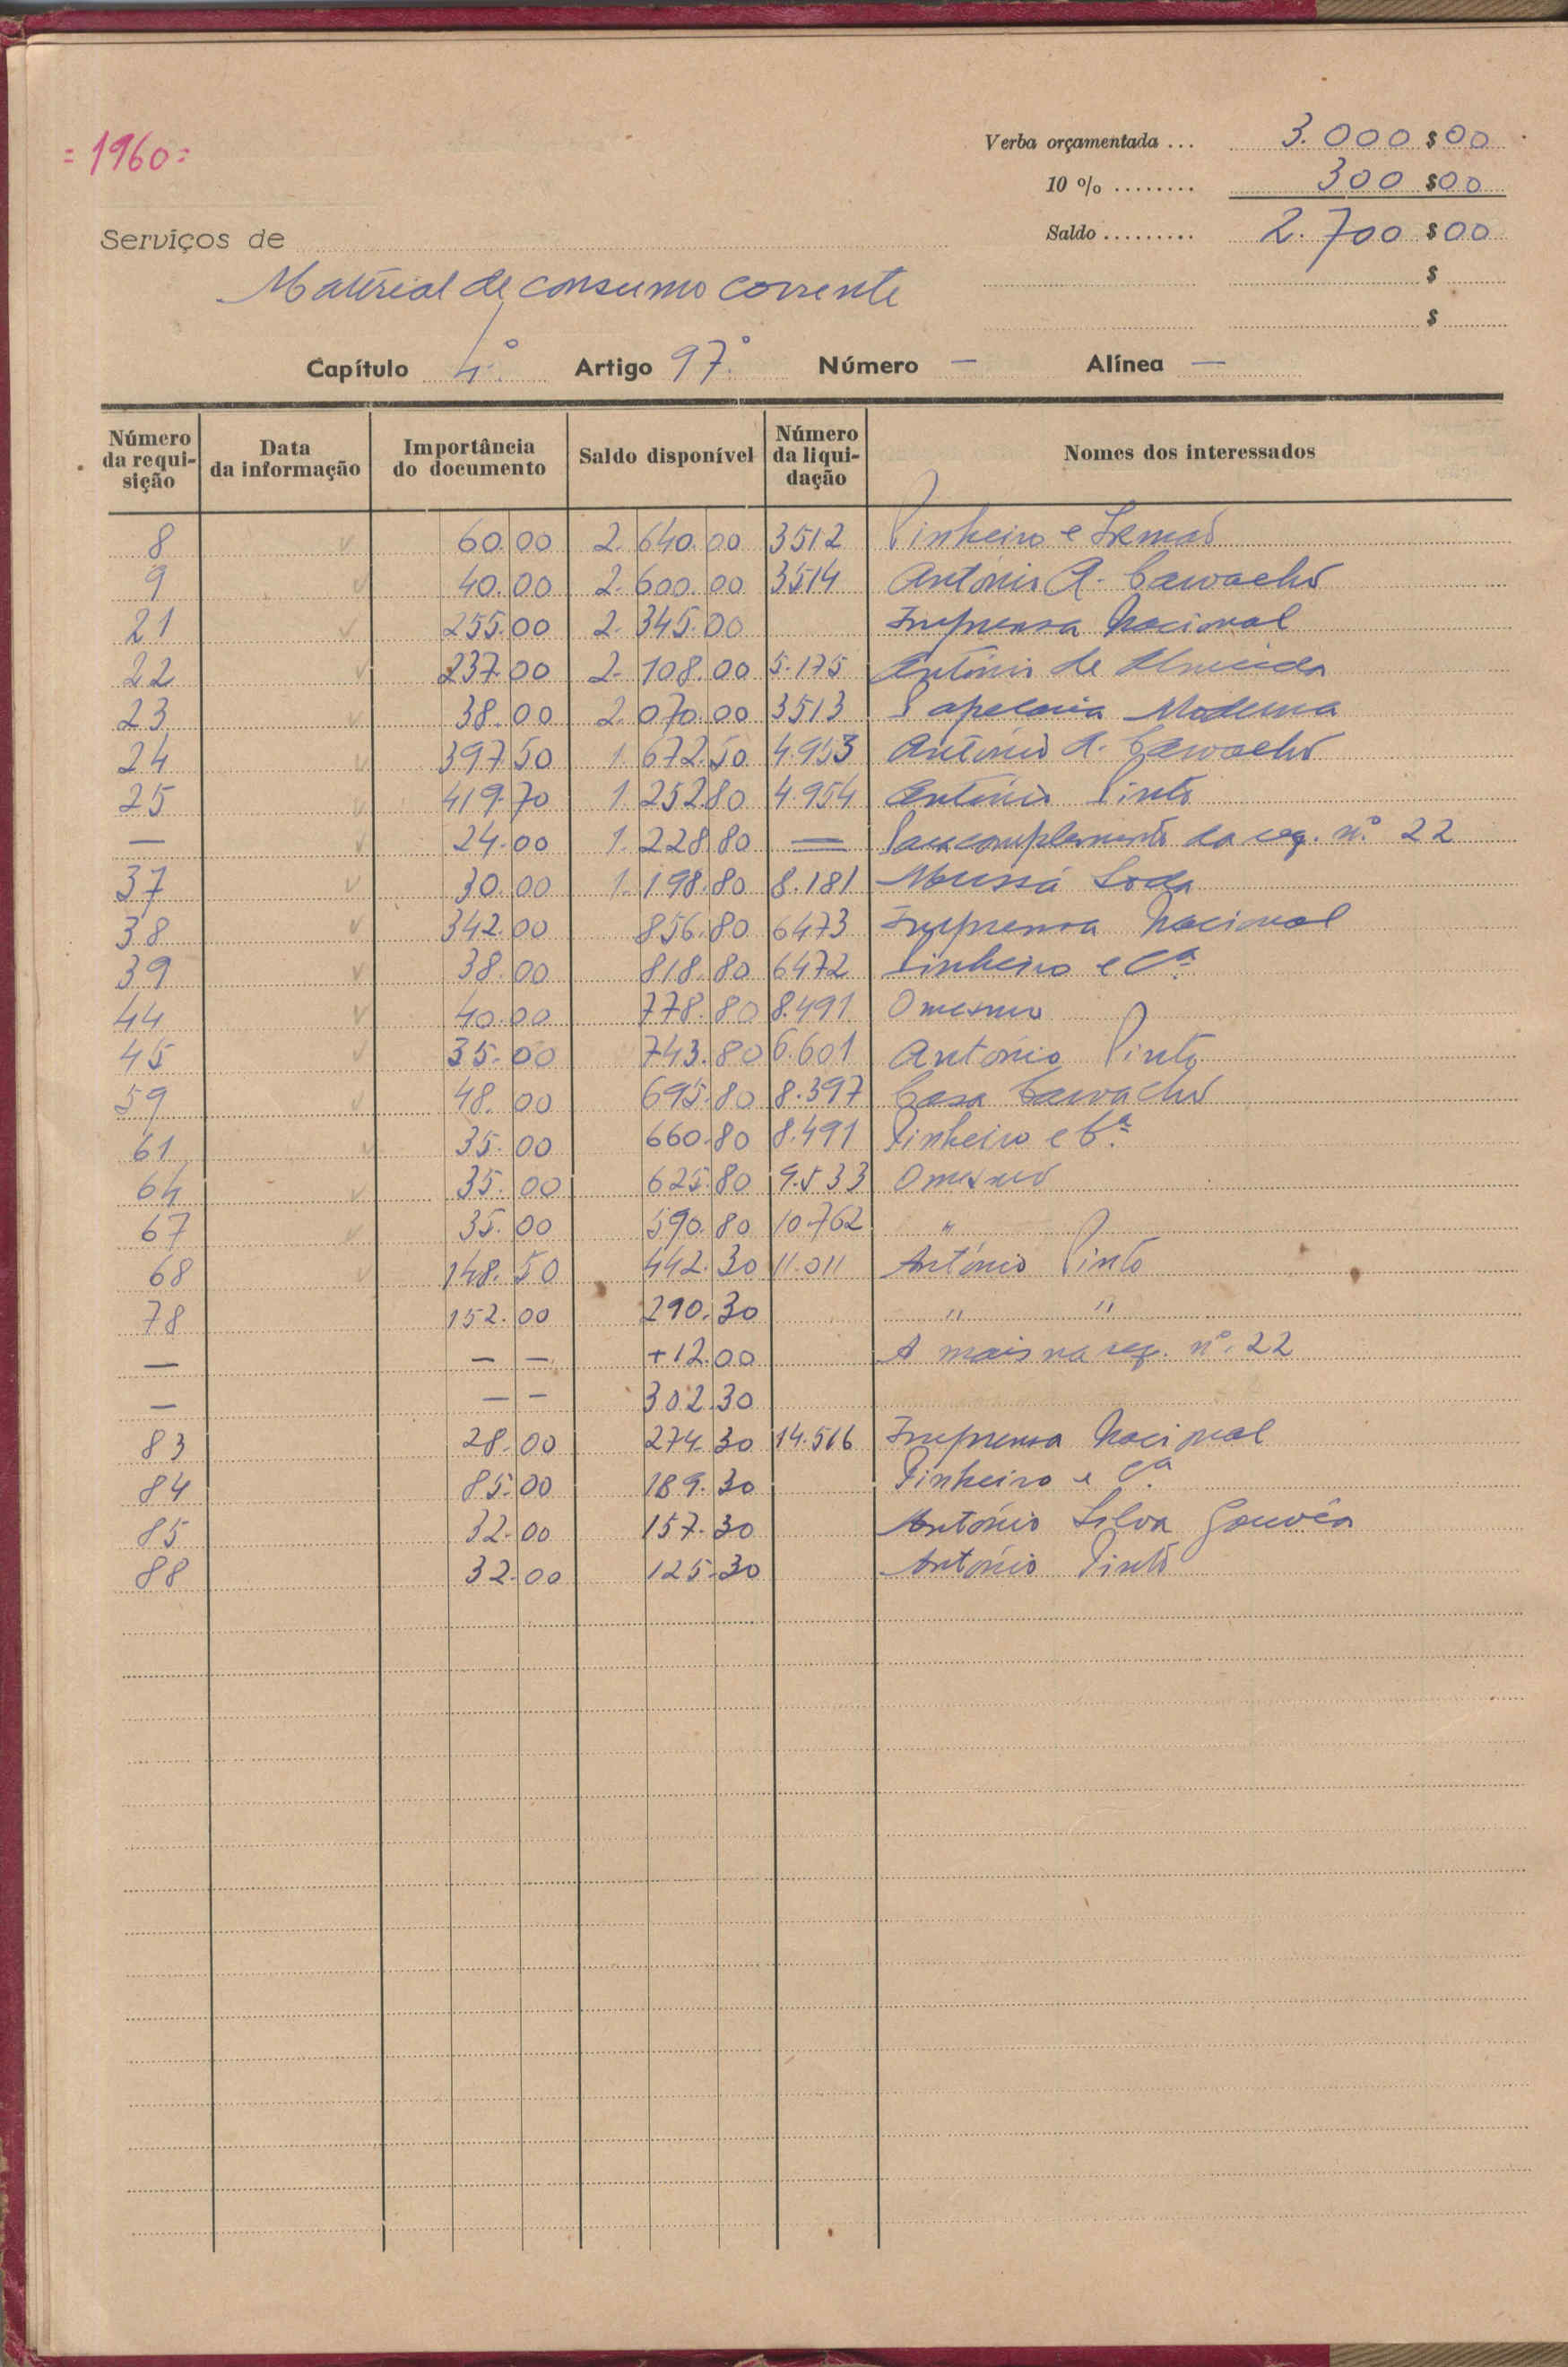 =1960=
Verba orçamentada ... 3.000$00
10 % ........ 300$00
Serviços de
Saldo ......... 2.700$00
$
Material de consumo corrente
$
Capítulo 4.º Artigo 97.º Número — Alínea —
Número da requisição Data da informação Importância do documento Saldo disponível Número da liquidação Nomes dos interessados
8 ✓ 60.00 2.640.00 3512 Pinheiro e Irmão
9 ✓ 40.00 2.600.00 3514 António A. Carvalho
21 ✓ 255.00 2.345.00 Imprensa Nacional
22 ✓ 237.00 2.108.00 5.175 António de Almeida
23 ✓ 38.00 2.070.00 3513 Papelaria Moderna
24 ✓ 397.50 1.672.50 4.953 António A. Carvalho
25 ✓ 419.70 1.252.80 4.954 António Pinto
— ✓ 24.00 1.228.80 — Para complemento da req. n.º 22
37 ✓ 30.00 1.198.80 8.181 Mussá
38 ✓ 342.00 856.80 6473 Imprensa Nacional
39 ✓ 38.00 818.80 6472 Pinheiro e Cª
44 ✓ 40.00 778.80 8.491 O mesmo
45 ✓ 35.00 743.80 6.601 António Pinto
59 ✓ 48.00 695.80 8.397 Casa Carvalho
61 ✓ 35.00 660.80 8.491 Pinheiro e Cª
64 ✓ 35.00 625.80 9.533 O mesmo
67 ✓ 35.00 590.80 10.762 "
68 ✓ 148.50 442.30 11.011 António Pinto
78 152.00 290.30 " "
— — — +12.00 A mais na req. nº. 22
— — — 302.30
83 28.00 274.30 14.516 Imprensa Nacional
84 85.00 189.30 Pinheiro e Cª
85 32.00 157.30 António Silva Gouvêa
88 32.00 125.30 António Pinto